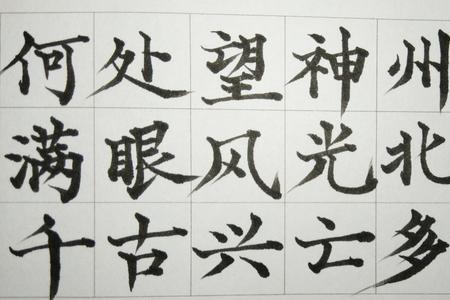 何处望神州
满眼风光北
千古兴亡多